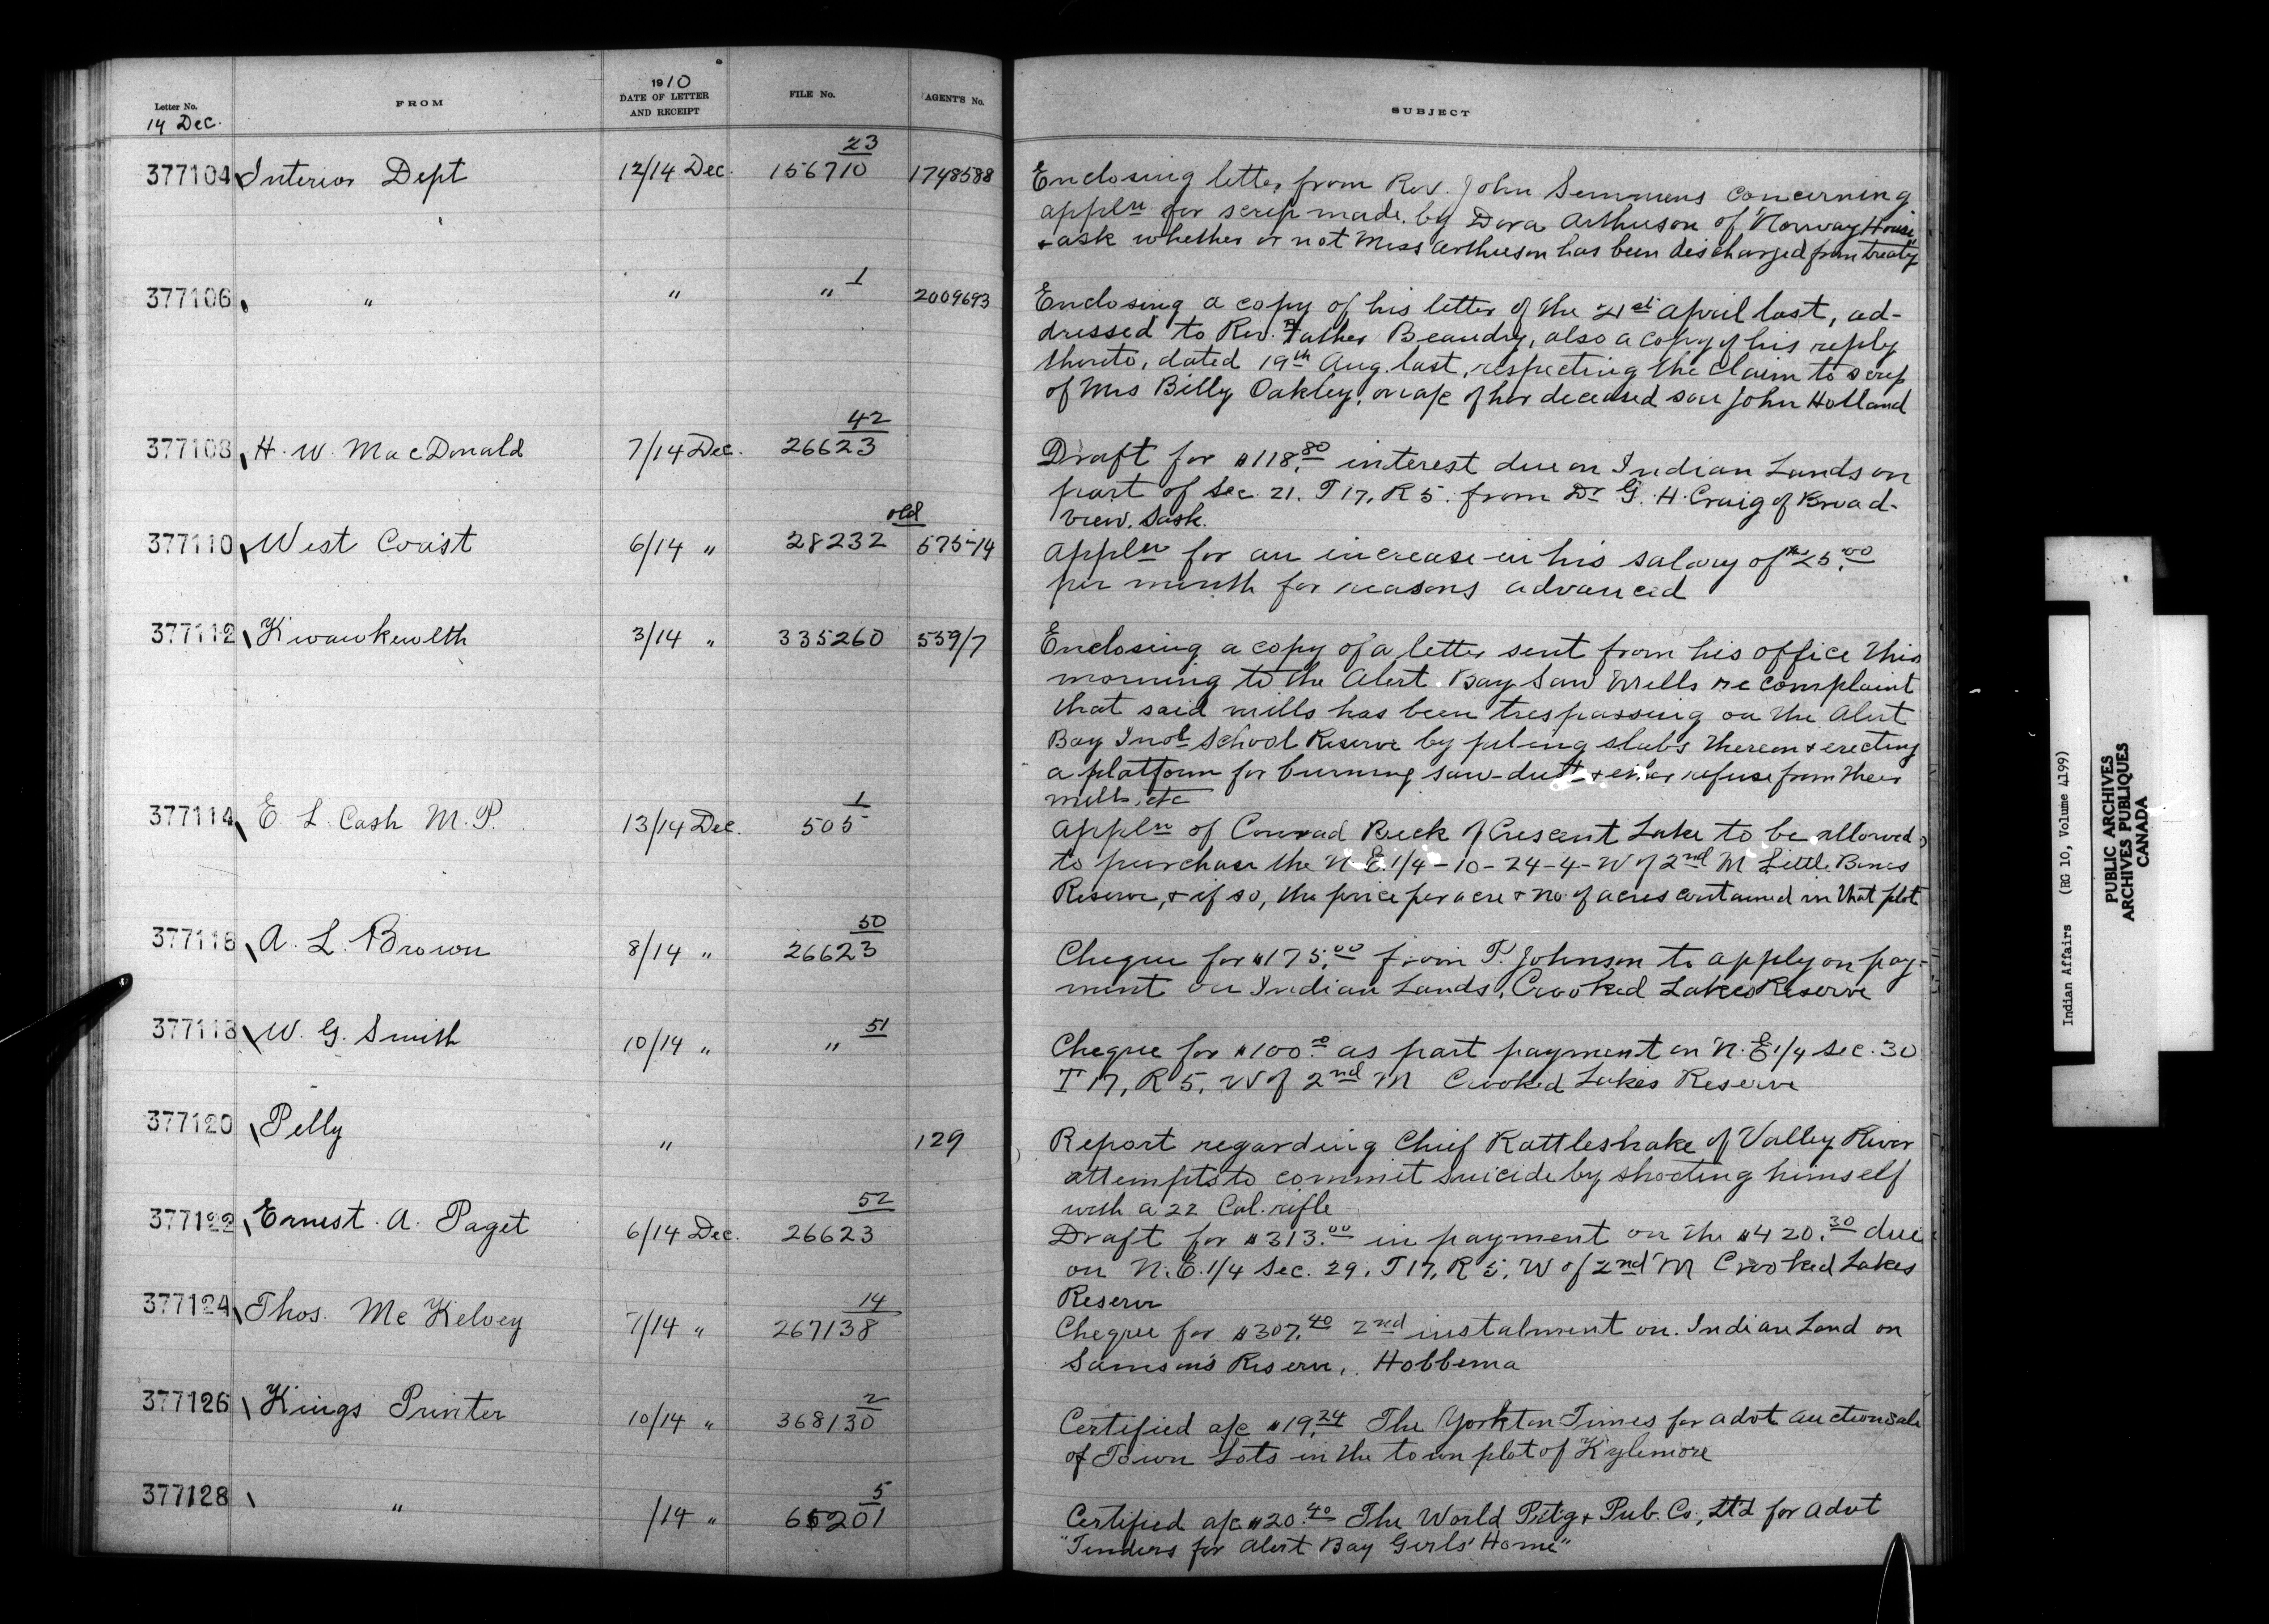 Letter No.
14 Dec.
FROM
1910
DATE OF LETTER
AND RECEIPT
FILE No.
AGENT'S No.
SUBJECT
377104 Interior Dept 12/14 Dec. 23
156710 1748588
Enclosing letter from Rev. John Semmens concerning
appln for scrip made by Dora Arthurson of "Norway House"
+ ask whether or not Miss Arthurson has been discharged from treaty
377106 " " " 1 2009693
Enclosing a copy of his letter of the 21st April last, ad-
dressed to Rev. Father Beaudry, also a copy of his reply
thereto, dated 19th Aug. last, respecting the claim to scrip
of Mrs Billy Oakley, on a/c of her deceased son John Holland
377108 H. W. MacDonald 7/14 Dec. 42
26623
Draft for $118.80 interest due on Indian Lands on
part of Sec. 21. T 17, R 5. from Dr G. H. Craig of Broad-
view. Sask.
377110 West Coast 6/14 " old
28232 575-14
Appln for an increase in his salary of $25.00
per month for reasons advanced
377112 Kwawkewlth 3/14 " 335260 539/7
Enclosing a copy of a letter sent from his office this
morning to the Alert Bay Saw Mills re complaint
that said mills has been trespassing on the Alert
Bay Indl School Reserve by piling slabs thereon + erecting
a platform for burning saw-dust + other refuse from their
mills, etc
377114 E. L. Cash M.P. 13/14 Dec. 1
505
Appln of Conrad Beck of Crescent Lake to be allowed
to purchase the N.E. 1/4 - 10 - 24 - 4 - W of 2nd M Little Bones
Reserve, + if so, the price per acre + no. of acres contained in that plot
377116 A. L. Brown 8/14 " 50
26623
Cheque for $175.00 from T. Johnson to apply on pay-
ment on Indian Lands, Crooked Lakes Reserve
377118 W. G. Smith 10/14 " " 51
Cheque for $100.00 as part payment on N.E 1/4 Sec. 30
T 17, R 5, W of 2nd M Crooked Lakes Reserve
377120 Pelly " 129
Report regarding Chief Rattleshake of Valley River
attempts to commit suicide by shooting himself
with a 22 Cal. rifle
377122 Ernest. A. Paget 6/14 Dec. 52
26623
Draft for $313.00 in payment on the $420.30 due
on N.E. 1/4 Sec. 29, T 17, R 5, W of 2nd M Crooked Lakes
Reserve
377124 Thos. McKelvey 7/14 " 14
267138
Cheque for $307.40 2nd instalment on Indian Land on
Samson's Reserve, Hobbema
377126 Kings Printer 10/14 " 2
368130
Certified a/c $19.24 The Yorkton Times for advt auction sale
of Town Lots in the town plot of Kylemore
377128 " /14 " 5
65201
Certified a/c $20.40 The World Prt'g + Pub. Co., Lt'd for advt
"Tenders for Alert Bay Girls' Home"
Indian Affairs (RG 10, Volume 4199)
PUBLIC ARCHIVES
ARCHIVES PUBLIQUES
CANADA